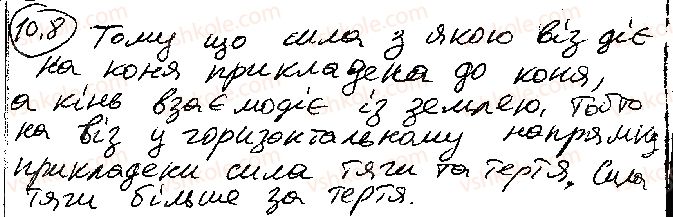 10.8 Тому що сила з якою віз діє
на коня прикладена до коня,
а кінь взаємодіє із землею, тобто
на віз у горизонтальному напрямку
прикладени сила тяги та тертя. Сила
тяги більше за тертя.